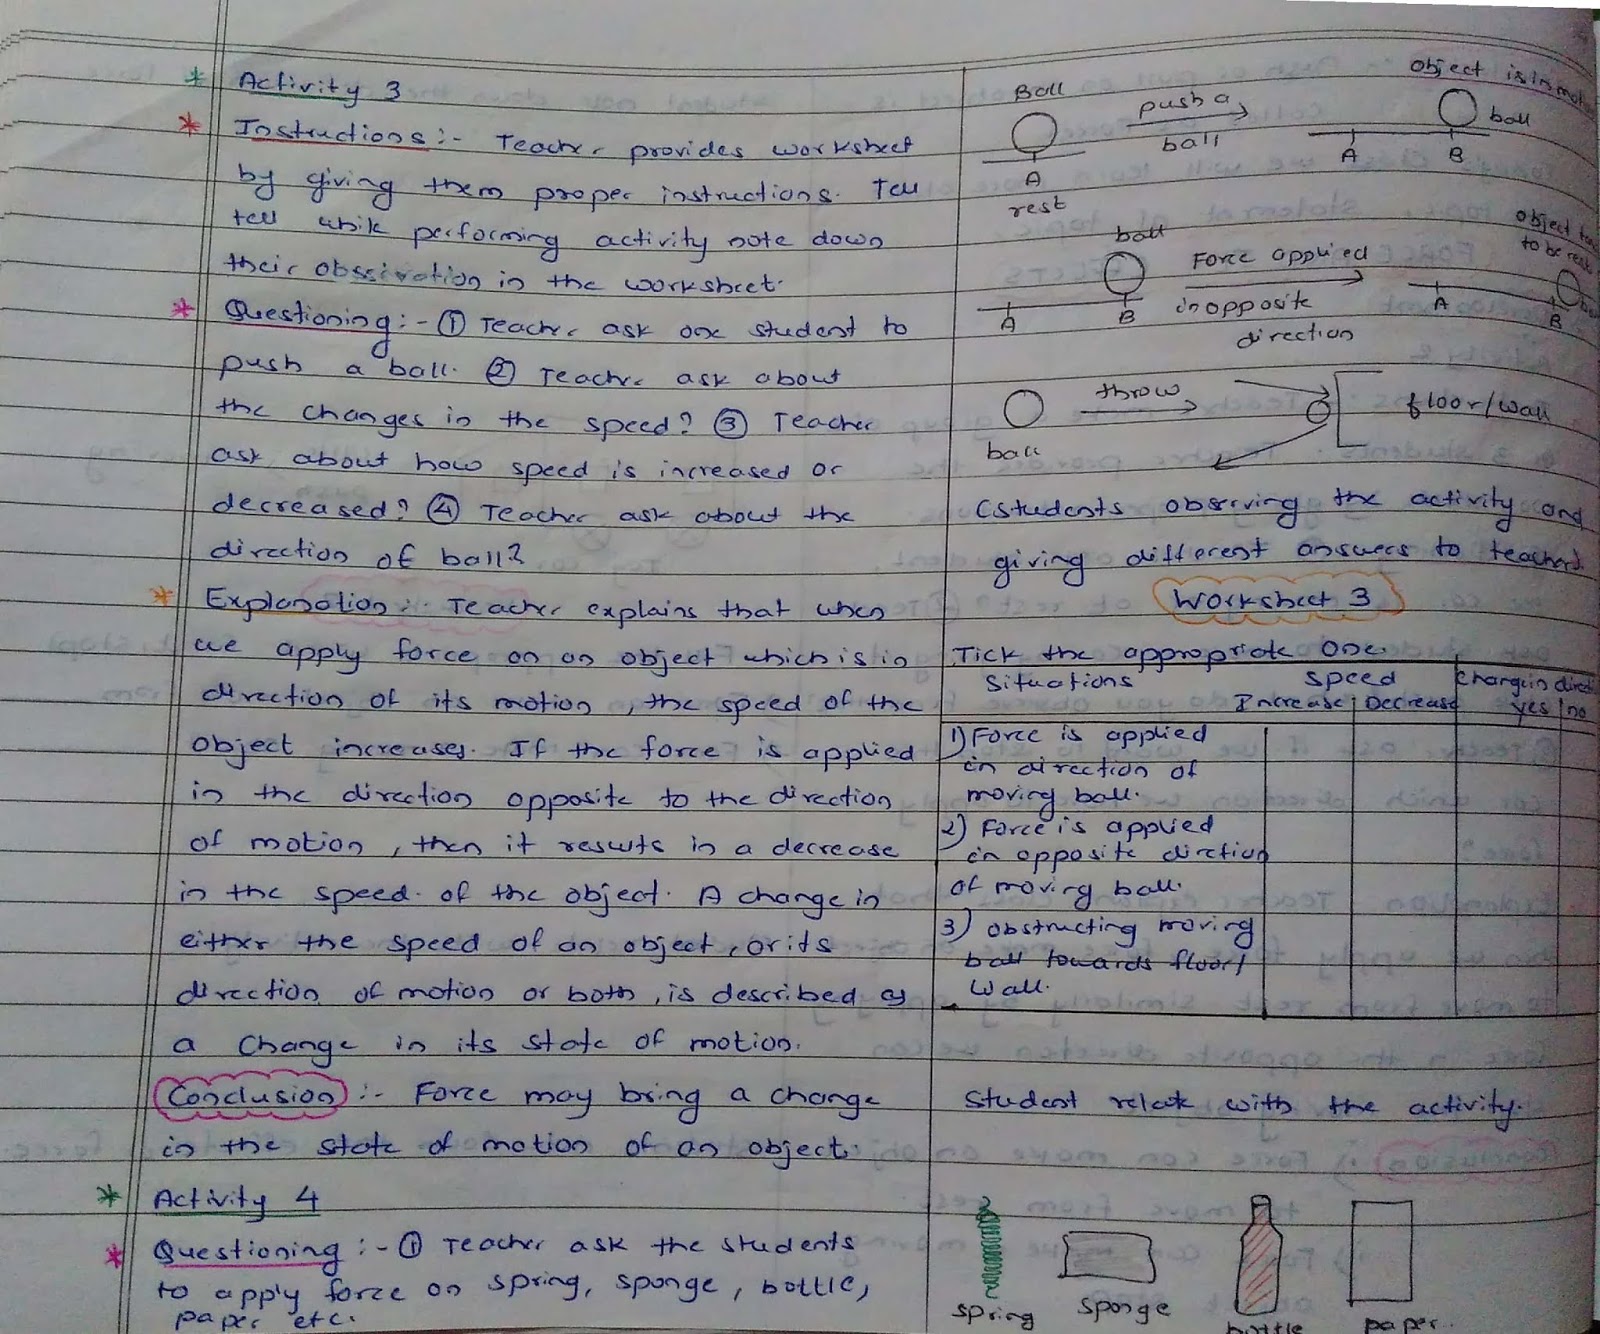 * Activity 3
* Instructions :- Teacher provides worksheet
by giving them proper instructions. Tell
tell while performing activity note down
their obssivation in the worksheet.
* Questioning :- ① Teacher ask one student to
push a ball. ② Teacher ask about
the changes in the speed? ③ Teacher
ask about how speed is increased or
decreased? ④ Teacher ask about the
direction of ball?
* Explanation :- Teacher explains that when
we apply force on an object which is in
direction of its motion, the speed of the
object increases. If the force is applied
in the direction opposite to the direction
of motion, then it results in a decrease
in the speed of the object. A change in
either the speed of an object, or its
direction of motion or both, is described as
a change in its state of motion.
Conclusion :- Force may bring a change
in the state of motion of an object.
* Activity 4
* Questioning :- ① Teacher ask the students
to apply force on spring, sponge, bottle,
paper etc.
Ball
push a
ball
object is in
ball
A
rest
A B
ball
Force applied
in opposite
direction
object
to be
A B
A B
ball
throw
floor/wall
(students observing the activity and
giving different answers to teacher)
Worksheet 3
Tick the appropriate one.
Situations Speed Change in
Increase Decrease yes no
1) Force is applied
in direction of
moving ball.
2) Force is applied
in opposite dirction
of moving ball.
3) obstructing moving
ball towards floor/
wall.
Student relate with the activity.
spring sponge bottle paper